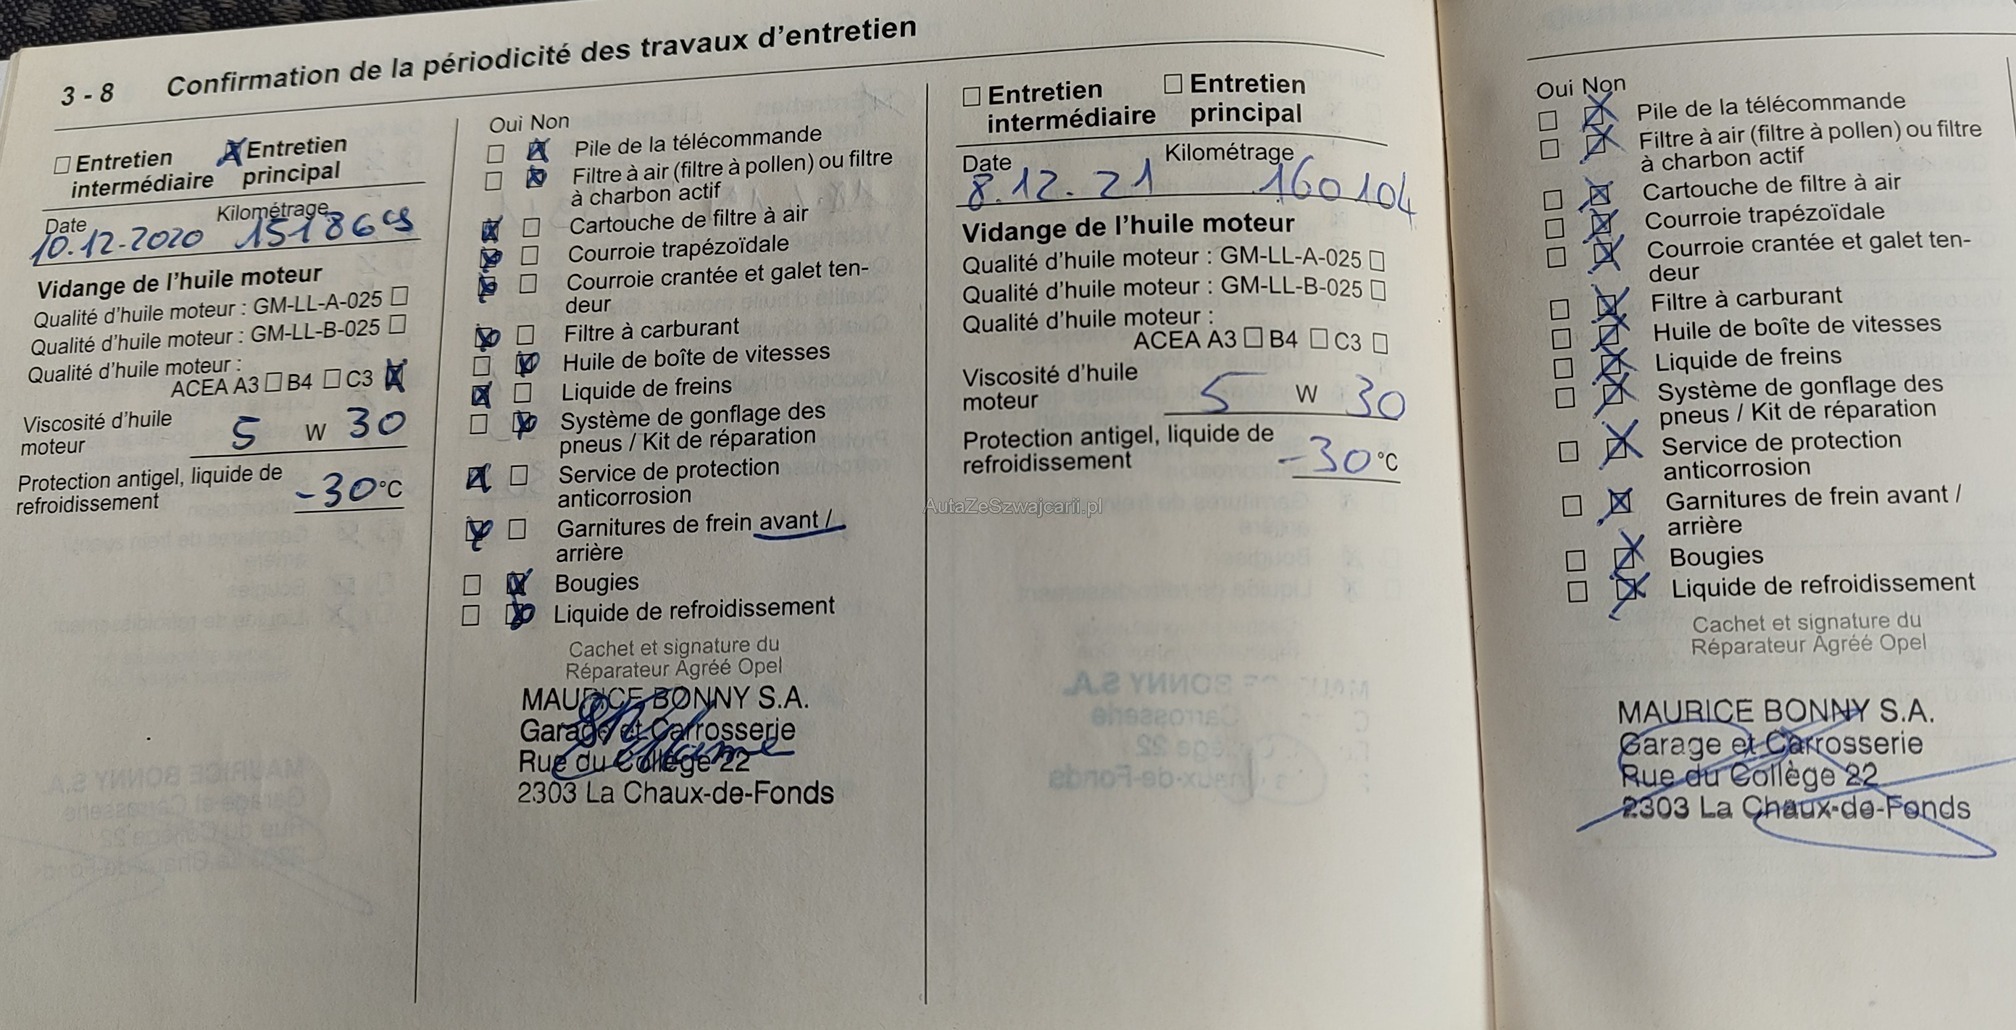 3 - 8 Confirmation de la périodicité des travaux d'entretien
Entretien intermédiaire
Entretien principal
Date
Kilométrage
10.12.2020
Vidange de l'huile moteur
Qualité d'huile moteur : GM-LL-A-025
Qualité d'huile moteur : GM-LL-B-025
Qualité d'huile moteur :
ACEA A3 B4 C3
Viscosité d'huile
moteur
5 W 30
Protection antigel, liquide de
refroidissement
-30°C
Oui Non
Pile de la télécommande
Filtre à air (filtre à pollen) ou filtre
à charbon actif
Cartouche de filtre à air
Courroie trapézoïdale
Courroie crantée et galet ten-
deur
Filtre à carburant
Huile de boîte de vitesses
Liquide de freins
Système de gonflage des
pneus / Kit de réparation
Service de protection
anticorrosion
Garnitures de frein avant /
arrière
Bougies
Liquide de refroidissement
Cachet et signature du
Réparateur Agréé Opel
MAURICE BONNY S.A.
Garage et Carrosserie
Rue du Collège 22
2303 La Chaux-de-Fonds
Entretien intermédiaire
Entretien principal
Date
Kilométrage
8.12.21 160104
Vidange de l'huile moteur
Qualité d'huile moteur : GM-LL-A-025
Qualité d'huile moteur : GM-LL-B-025
Qualité d'huile moteur :
ACEA A3 B4 C3
Viscosité d'huile
moteur
5 W 30
Protection antigel, liquide de
refroidissement
-30°C
AutaZeSzwajcarii.pl
Oui Non
Pile de la télécommande
Filtre à air (filtre à pollen) ou filtre
à charbon actif
Cartouche de filtre à air
Courroie trapézoïdale
Courroie crantée et galet ten-
deur
Filtre à carburant
Huile de boîte de vitesses
Liquide de freins
Système de gonflage des
pneus / Kit de réparation
Service de protection
anticorrosion
Garnitures de frein avant /
arrière
Bougies
Liquide de refroidissement
Cachet et signature du
Réparateur Agréé Opel
MAURICE BONNY S.A.
Garage et Carrosserie
Rue du Collège 22
2303 La Chaux-de-Fonds